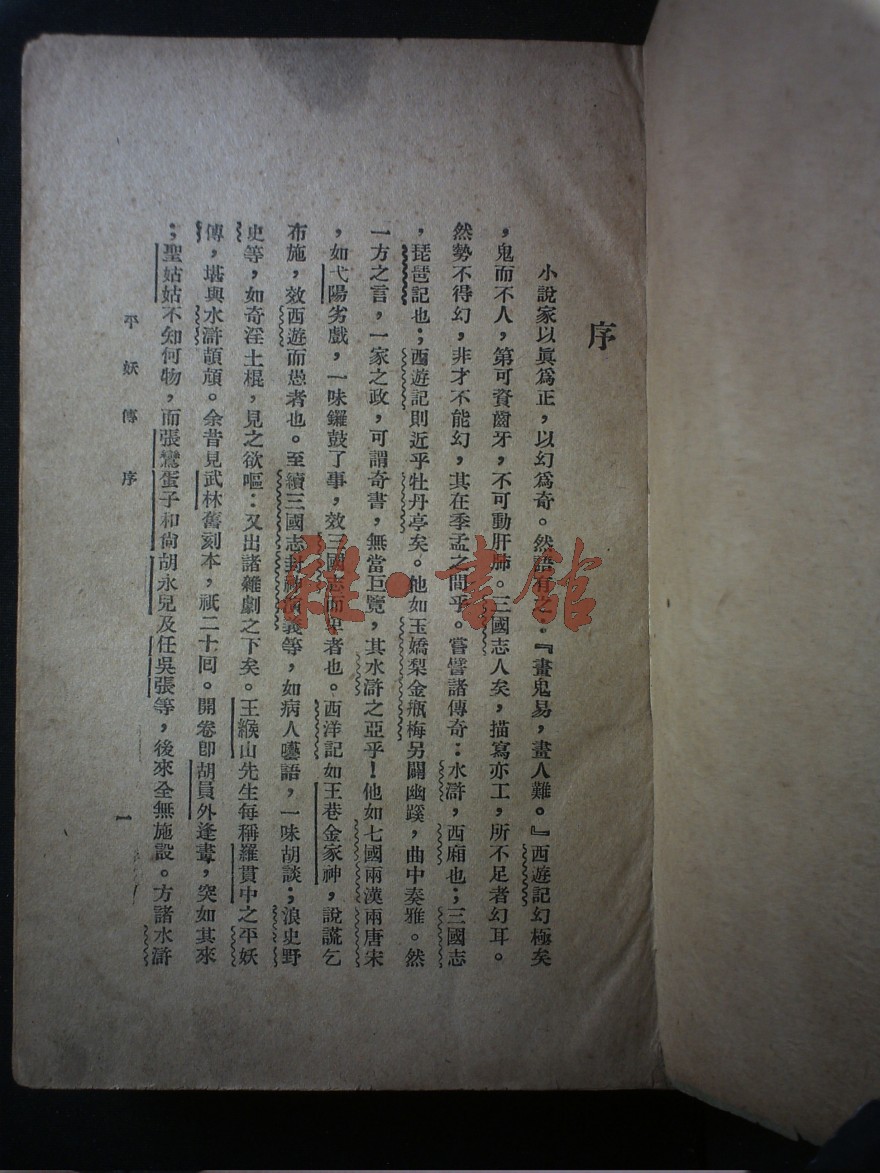 序
小說家以眞爲正，以幻爲奇。然語有之：『畫鬼易，畫人難。』西遊記幻極矣
，鬼而不人，第可資齒牙，不可動肝肺。三國志人矣，描寫亦工，所不足者幻耳。
然勢不得幻，非才不能幻，其在季孟之間乎。嘗譬諸傳奇：水滸，西廂也；三國志
，琵琶記也；西遊記則近乎牡丹亭矣。他如玉嬌梨金瓶梅另闢幽蹊，曲中奏雅。然
一方之言，一家之政，可謂奇書，無當巨覽，其水滸之亞乎！他如七國兩漢兩唐宋
，如弋陽劣戲，一味鑼鼓了事，效三國志而卑者也。西洋記如王巷金家神，說謊乞
布施，效西遊而愚者也。至續三國志封神演義等，如病人囈語，一味胡談；浪史野
史等，如奇淫土棍，見之欲嘔：又出諸雜劇之下矣。王緱山先生每稱羅貫中之平妖
傳，堪與水滸頡頏。余昔見武林舊刻本，祇二十回。開卷卽胡員外逢畫，突如其來
；聖姑姑不知何物，而張鸞蛋子和尙胡永兒及任吳張等，後來全無施設。方諸水滸
平妖傳 序 一
雜·書館